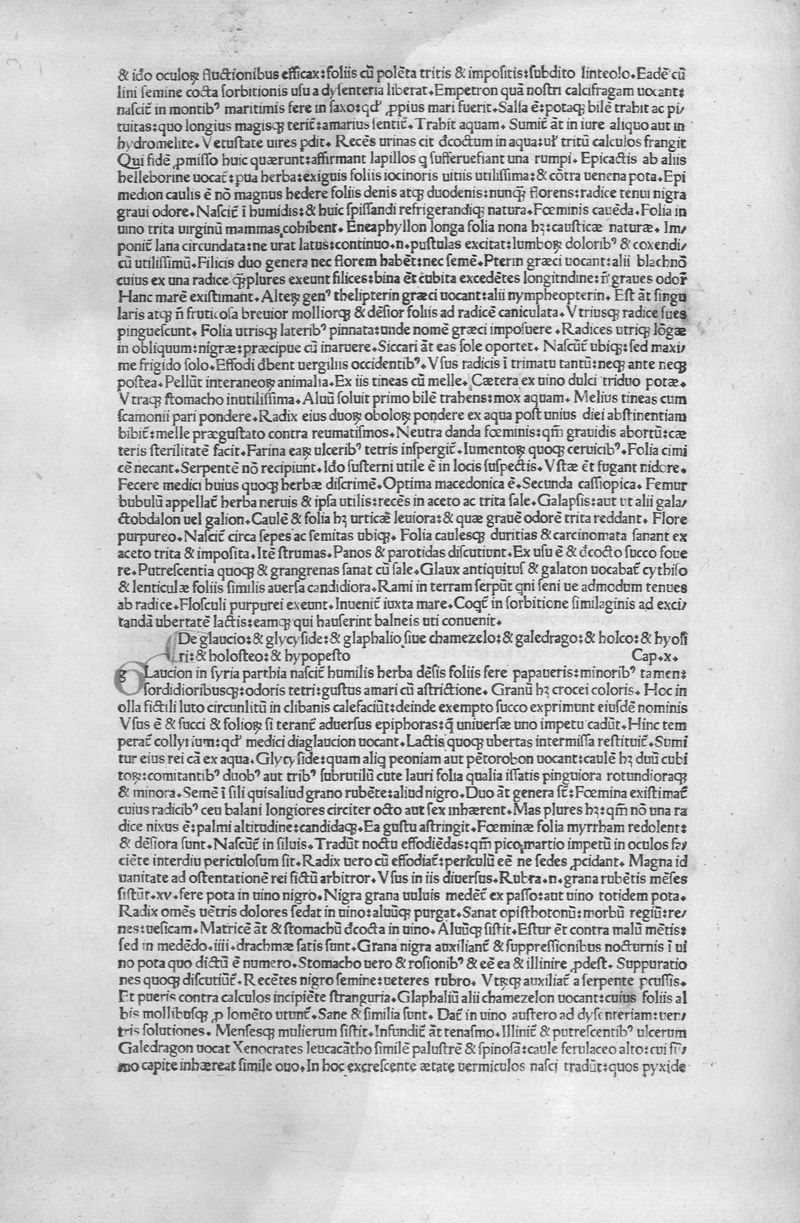 & ido oculoꝝ fluctionibus efficax:foliis cũ polẽta tritis & impositis:subdito linteolo. Eadẽ cũ
lini semine cocta sorbitionis usu a dysenteria liberat. Empetron quã nostri calcifragam uocant:
nascit̃ in montibꝰ maritimis fere in saxo:qđ ꝓpius mari fuerit. Salsa ẽ:potaqꝫ bilẽ trahit ac pi/
tuitas:quo longius magisqꝫ terit̃:amarius sentit̃. Trahit aquam. Sumit̃ āt in iure aliquo aut in
hydromelite. Vetustate uires ꝑdit. Recẽs urinas cit dcoctum in aqua:uł tritũ calculos frangit
Qui fidẽ ꝓmisso huic quærunt:affirmant lapillos q̃ sufferuefiant una rumpi. Epicactis ab aliis
helleborine uocat̃:pua herba:exiguis foliis iocinoris uitiis utilissima:& cõtra uenena pota. Epi
medion caulis ẽ nõ magnus hedere foliis denis atqꝫ duodenis:nunq̃ florens:radice tenui nigra
graui odore. Nascit̃ ĩ humidis:& huic spissandi refrigerandiqꝫ natura. Fœminis cauẽda. Folia in
uino trita uirginũ mammas cohibent. Eneaphyllon longa folia nona hꝫ:causticæ naturæ. Im/
ponit̃ lana circundata:ne urat latus:continuo.n.pustulas excitat:lumboꝝ doloribꝰ & coxendi/
cũ utilissimũ. Filicis duo genera nec florem habẽt:nec semẽ. Pterin græci uocant:alii blachnõ
cuius ex una radice q̃plures exeunt filices:bina ẽt cubita excedẽtes longitndine:ñ graues odoř
Hanc marẽ existimant. Alteꝝ genꝰ thelipterin græci uocant:alii nympheopterin. Est āt singu
laris atqꝫ ñ fruticosa breuior molliorqꝫ & dẽsior foliis ad radicẽ caniculata. Vtriusqꝫ radice sues
pinguescunt. Folia utrisqꝫ lateribꝰ pinnata:unde nomẽ græci imposuere. Radices utriqꝫ lõgæ
in obliquum:nigræ:præcipue cũ inaruere. Siccari āt eas sole oportet. Nascũt̃ ubiqꝫ:sed maxi/
me frigido solo. Effodi dbent uergiliis occidentibꝰ. Vsus radicis ĩ trimatu tantũ:neqꝫ ante neqꝫ
postea. Pellũt interaneoꝝ animalia. Ex iis tineas cũ melle. Cætera ex uino dulci triduo potæ.
Vtraqꝫ stomacho inutilissima. Aluũ soluit primo bilẽ trahens:mox aquam. Melius tineas cum
scamonii pari pondere. Radix eius duoꝝ oboloꝝ pondere ex aqua post unius diei abstinentiam
bibit̃:melle prægustato contra reumatismos. Neutra danda fœminis:qm̃ grauidis abortũ:cæ
teris sterilitatẽ facit. Farina eaꝝ ulceribꝰ tetris inspergit̃. Iumentoꝝ quoqꝫ ceruicibꝰ. Folia cimi
cẽ necant. Serpentẽ nõ recipiunt. Ido susterni utile ẽ in locis suspectis. Vstæ ẽt fugant nidore.
Fecere medici huius quoqꝫ herbæ discrimẽ. Optima macedonica ẽ. Secunda cassiopica. Femur
bubulũ appellat̃ herba neruis & ipsa utilis:recẽs in aceto ac trita sale. Galapsis:aut ut alii gala/
ctobdalon uel galion. Caulẽ & folia hꝫ urticæ leuiora:& quæ grauẽ odorẽ trita reddant. Flore
purpureo. Nascit̃ circa sepes ac semitas ubiqꝫ. Folia caulesqꝫ duritias & carcinomata sanant ex
aceto trita & imposita. Itẽ strumas. Panos & parotidas discutiunt. Ex usu ẽ & dcocto succo foue
re. Putrescentia quoqꝫ & grangrenas sanat cũ sale. Glaux antiquitus & galaton uocabat̃ cythiso
& lenticulæ foliis similis auersa candidiora. Rami in terram serpũt qni seni ue admodum tenues
ab radice. Flosculi purpurei exeunt. Inuenit̃ iuxta mare. Coqt̃ in sorbitione similaginis ad exci/
tandã ubertatẽ lactis:eamqꝫ qui hauserint balneis uti conuenit.
De glaucio:& glycyside:& glaphalio siue chamezelo:& galedrago:& holco:& hyosi
ri:& holosteo:& hypopesto Cap.x.
gLaucion in syria parthia nascit̃ humilis herba dẽsis foliis fere papaueris:minoribꝰ tamen:
sordidioribusqꝫ:odoris tetri:gustus amari cũ astrictione. Granũ hꝫ crocei coloris. Hoc in
olla fictili luto circunlitũ in clibanis calefaciũt:deinde exempto succo exprimunt eiusdẽ nominis
Vsus ẽ & succi & folioꝝ si terant̃ aduersus epiphoras:q̃ uniuersæ uno impetu cadũt. Hinc tem
perat̃ collyrium:qđ medici diaglaucion uocant. Lactis quoqꝫ ubertas intermissa restituit̃. Sumi
tur eius rei cã ex aqua. Glycyside:quam aliq̃ peoniam aut pẽtorobon uocant:caulẽ hꝫ duũ cubi
toꝝ:comitantibꝰ duobꝰ aut tribꝰ subrutilũ cute lauri folia qualia issatis pinguiora rotundioraqꝫ
& minora. Semẽ ĩ sili quisaliud grano rubẽte:aliud nigro. Duo āt genera st̃:Fœmina existimat̃
cuius radicibꝰ ceu balani longiores circiter octo aut sex inhærent. Mas plures hꝫ:qm̃ nõ una ra
dice nixus ẽ:palmi altitudine:candidaqꝫ. Ea gustu astringit. Fœminæ folia myrrham redolent:
& dẽsiora sunt. Nascũt̃ in siluis. Tradũt noctu effodiẽdas:qm̃ pico martio impetũ in oculos fa/
ciẽte interdiu periculosum sit. Radix uero cũ effodiat̃:periculũ eẽ ne sedes ꝓcidant. Magna id
uanitate ad ostentationẽ rei fictũ arbitror. Vsus in iis diuersus. Rubra.n.grana rubẽtis mẽses
sistũt.xv.fere pota in uino nigro. Nigra grana uuluis medẽt̃ ex passo:aut uino totidem pota.
Radix omẽs uẽtris dolores sedat in uino:aluũqꝫ purgat. Sanat opisthotonũ:morbũ regiũ:re/
nes:uesicam. Matricẽ āt & stomachũ dcocta in uino. Aluũqꝫ sistit. Estur ẽt contra malũ mẽtis:
sed in medẽdo.iiii.drachmæ satis sunt. Grana nigra auxiliant̃ & suppressionibus nocturnis ĩ ui
no pota quo dictũ ẽ numero. Stomacho uero & rosionibꝰ & eẽ ea & illinire ꝓdest. Suppuratio
nes quoqꝫ discutiũt̃. Recẽtes nigro semine:ueteres rubro. Vtrqꝫ auxiliat̃ a serpente ꝑcussis.
Et pueris contra calculos incipiẽte stranguria. Glaphaliũ alii chamezelon uocant:cuius foliis al
bis mollibusqꝫ ꝓ lomẽto utunt̃. Sane & similia sunt. Dat̃ in uino austero ad dysenteriam:uen/
tris solutiones. Mensesqꝫ mulierum sistit. Infundit̃ āt tenasmo. Illinit̃ & putrescentibꝰ ulcerum
Galedragon uocat Xenocrates leucacãtho similẽ palustrẽ & spinosã:caule ferulaceo alto:cui sũ/
mo capite inhæreat simile ouo. In hoc excrescente ætate uermiculos nasci tradũt:quos pyxide